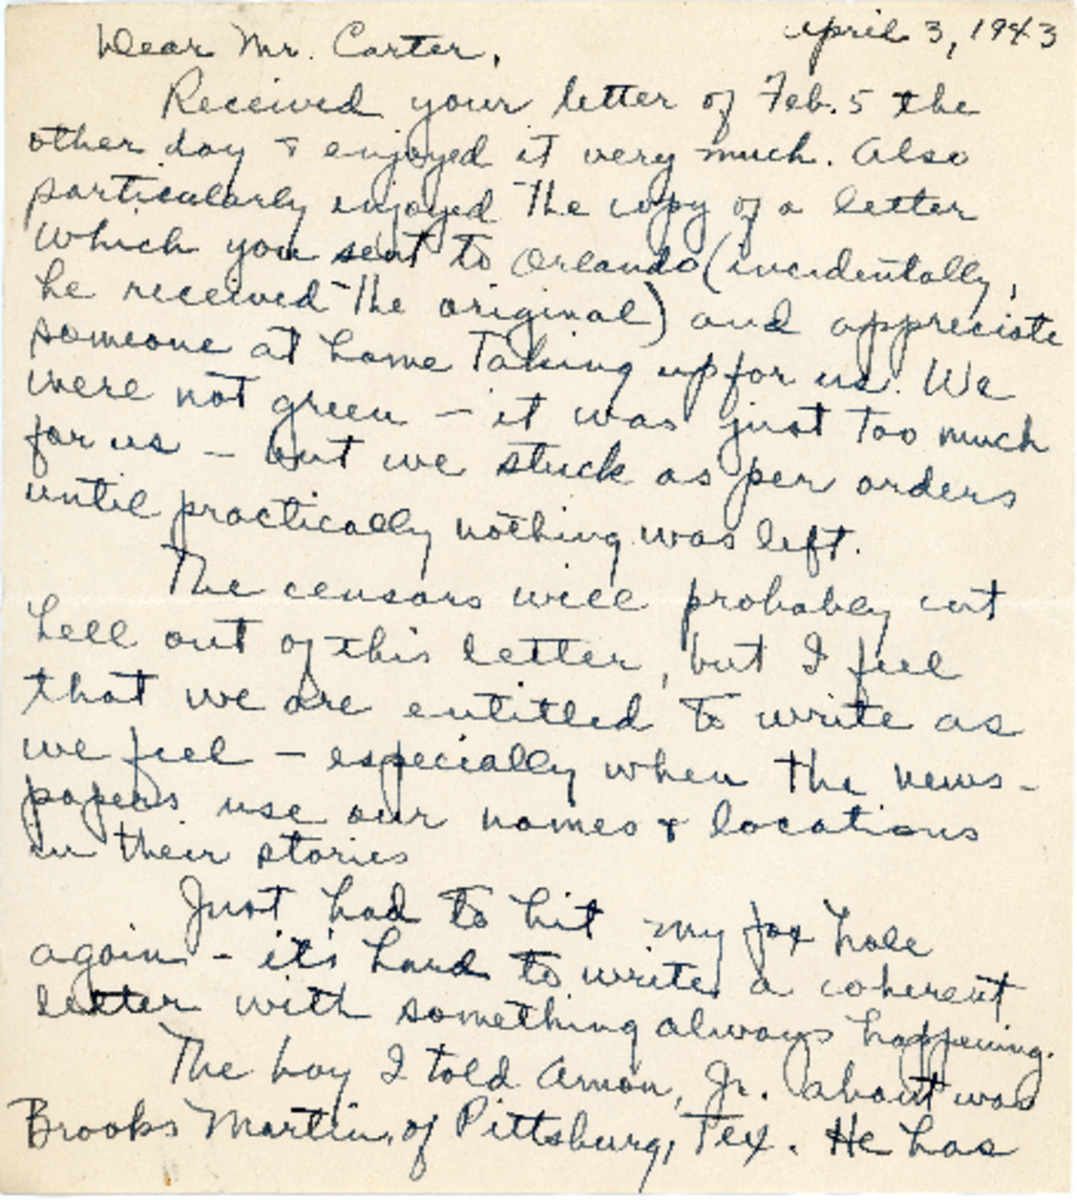 April 3, 1943
Dear Mr. Carter,
Received your letter of Feb. 5 the
other day & enjoyed it very much. Also
particularly enjoyed the copy of a letter
which you sent to Orlando (incidentally,
he received the original) and appreciate
someone at home taking up for us. We
were not green – it was just too much
for us – but we stuck as per orders
until practically nothing was left.
The censors will probably cut
hell out of this letter, but I feel
that we are entitled to write as
we feel – especially when the news-
papers use our names & locations
in their stories
Just had to hit my fox hole
again – it's hard to write a coherent
letter with something always happening.
The boy I told Amon, Jr. about was
Brooks Martin, of Pittsburg, Tex. He has